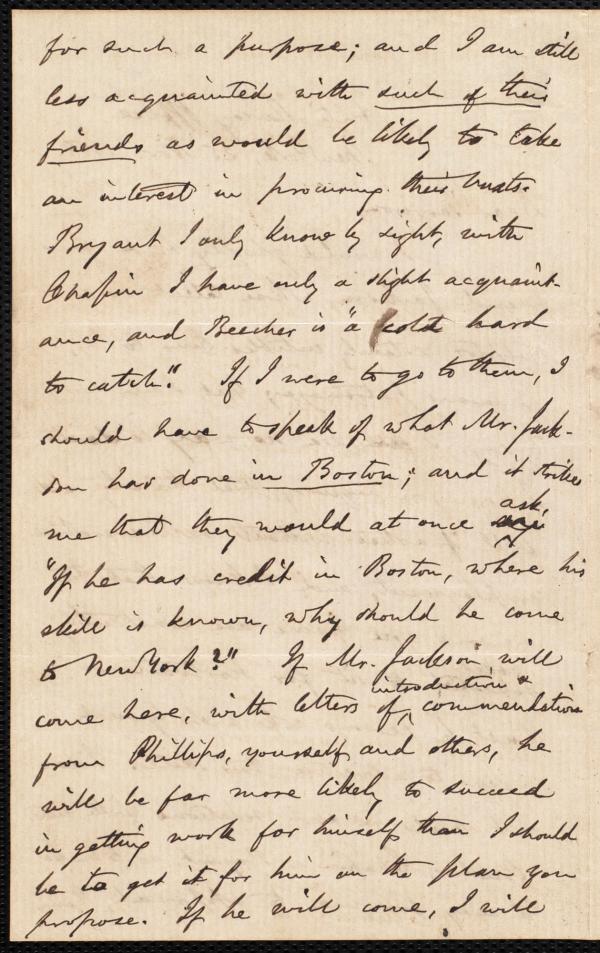 for such a purpose; and I am still
less acquainted with such of their
friends as would be likely to take
an interest in procuring their busts.
Bryant I only know by sight, with
Chapin I have only a slight acquaint-
ance, and Beecher is "a cold hard
to catch." If I were to go to them, I
should have to speak of what Mr. Jack-
son has done in Boston; and it strikes
me that they would at once ask,
"If he has credit in Boston, where his
skill is known, why should he come
to New York?" If Mr. Jackson will
come here, with letters of introduction & commendation
from Phillips, yourself and others, he
will be far more likely to succeed
in getting work for himself than I should
be to get it for him on the plan you
propose. If he will come, I will